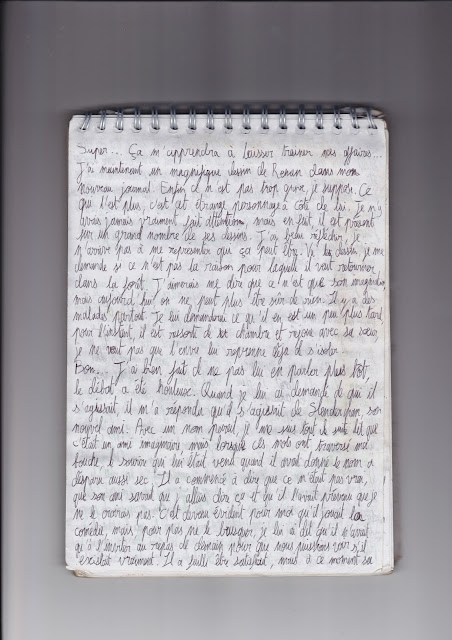 Super... Ça m'apprendra à laisser trainer mes affaires...
J'ai maintenant un magnifique dessin de Kenan dans mon
nouveau journal. Enfin ce n'est pas trop grave, je suppose. Ce
qui l'est plus c'est cet étrange personnage à côté de lui. Je n'y
avais jamais vraiment fait attention, mais en fait il est présent
sur un grand nombre de ses dessins. J'ai beau réfléchir, je
n'arrive pas à me représenter qui ça peut être. Vu les dessins, je me
demande si ce n'est pas la raison pour laquelle il veut retourner
dans la forêt. J'aimerais me dire que ce n'est que son imagination
mais aujourd'hui on ne peut plus être sûr de rien. Il y a des
malades partout. Je lui demanderai ce qu'il en est un peu plus tard,
pour l'instant, il est ressorti de sa chambre et rejoue avec sa sœur,
je ne veut pas que l'envie lui reprenne déjà de s'isoler.
Bon... J'ai bien fait de ne pas lui en parler plus tôt,
le débat a été houleux. Quand je lui ai demandé de qui il
s'agissait, il m'a répondu qu'il s'agissait de Slenderman, son
nouvel ami. Avec un nom pareil, je me suis tout de suite dit que
c'était un ami imaginaire mais lorsque ces mots ont traversé ma
bouche, le sourire qui lui était venu quand il avait donné le nom a
disparu aussi sec. Il a commencé à dire que ce n'était pas vrai,
que son ami savait que j'allais dire ça et qu'il l'avait prévenu que je
ne le croirais pas. C'est devenu évident pour moi qu'il jouait la
comédie, mais pour pas ne le brusquer, je lui ai dit qu'il n'avait
qu'à l'inviter au repas de demain pour que nous puissions voir s'il
existait vraiment. Il a failli être satisfait, mais à ce moment sa